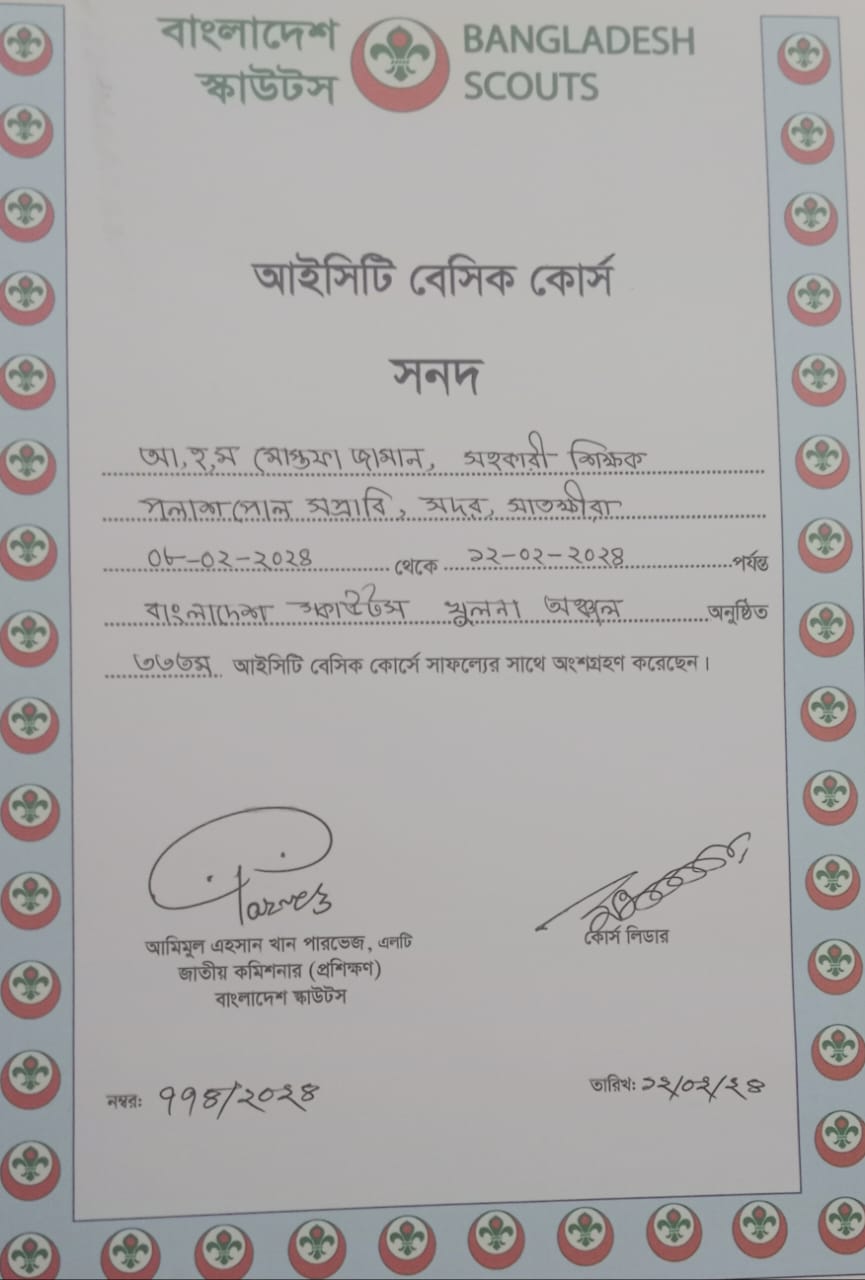 বাংলাদেশ
স্কাউটস
BANGLADESH
SCOUTS
আইসিটি বেসিক কোর্স
সনদ
আ,হ,ম মোস্তফা জামান, সহকারী শিক্ষক
পলাশপোল সপ্রাবি, সদর, সাতক্ষীরা
০৮-০২-২০২৪ থেকে ১২-০২-২০২৪ পর্যন্ত
বাংলাদেশ স্কাউটস খুলনা অঞ্চল অনুষ্ঠিত
৩৩৩তম আইসিটি বেসিক কোর্সে সাফল্যের সাথে অংশগ্রহণ করেছেন।
Parvez
আমিমুল এহসান খান পারভেজ, এলটি
জাতীয় কমিশনার (প্রশিক্ষণ)
বাংলাদেশ স্কাউটস
কোর্স লিডার
নম্বর: ৭৭৪/২০২৪
তারিখ: ১২/০২/২৪